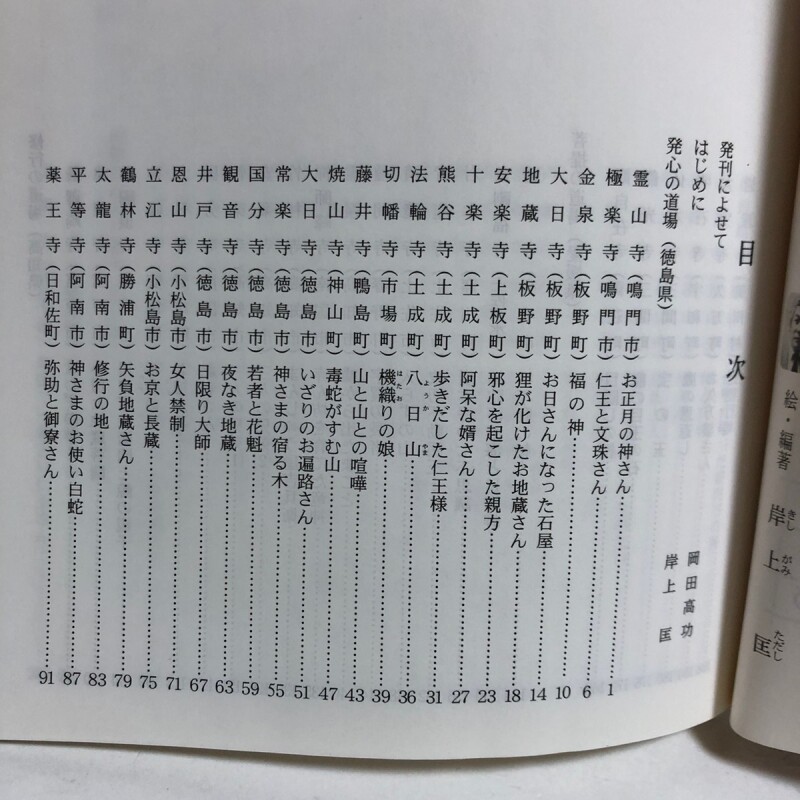 目次
発刊によせて 岡田高功
はじめに 岸上匡
発心の道場(徳島県)
霊山寺(鳴門市)お正月の神さん 1
極楽寺(鳴門市)仁王と文珠さん 6
金泉寺(板野町)福の神 10
大日寺(板野町)お日さんになった石屋 14
地蔵寺(板野町)狸が化けたお地蔵さん 18
安楽寺(上板町)邪心を起こした親方 23
十楽寺(土成町)阿呆な婿さん 27
熊谷寺(土成町)歩きだした仁王様 31
法輪寺(土成町)八日山 ようか やま 36
切幡寺(市場町)機織りの娘 はたお 39
藤井寺(鴨島町)山と山との喧嘩 43
焼山寺(神山町)毒蛇がすむ山 47
大日寺(徳島市)いざりのお遍路さん 51
常楽寺(徳島市)神さまの宿る木 55
国分寺(徳島市)若者と花魁 59
観音寺(徳島市)夜なき地蔵 63
井戸寺(徳島市)日限り大師 67
恩山寺(小松島市)女人禁制 71
立江寺(小松島市)お京と長蔵 75
鶴林寺(勝浦町)矢負地蔵さん 79
太龍寺(阿南市)修行の地 83
平等寺(阿南市)神さまのお使い白蛇 87
薬王寺(日和佐町)弥助と御寮さん 91
絵・編著 岸上匡 きし がみ ただし